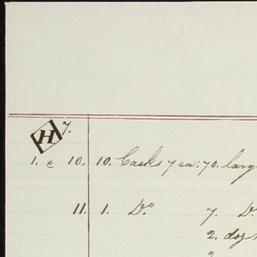 H 7.
1. e 10. 10. Casks 7 ea: 70. larg
11. 1. Do. 7. D
2. doz
2